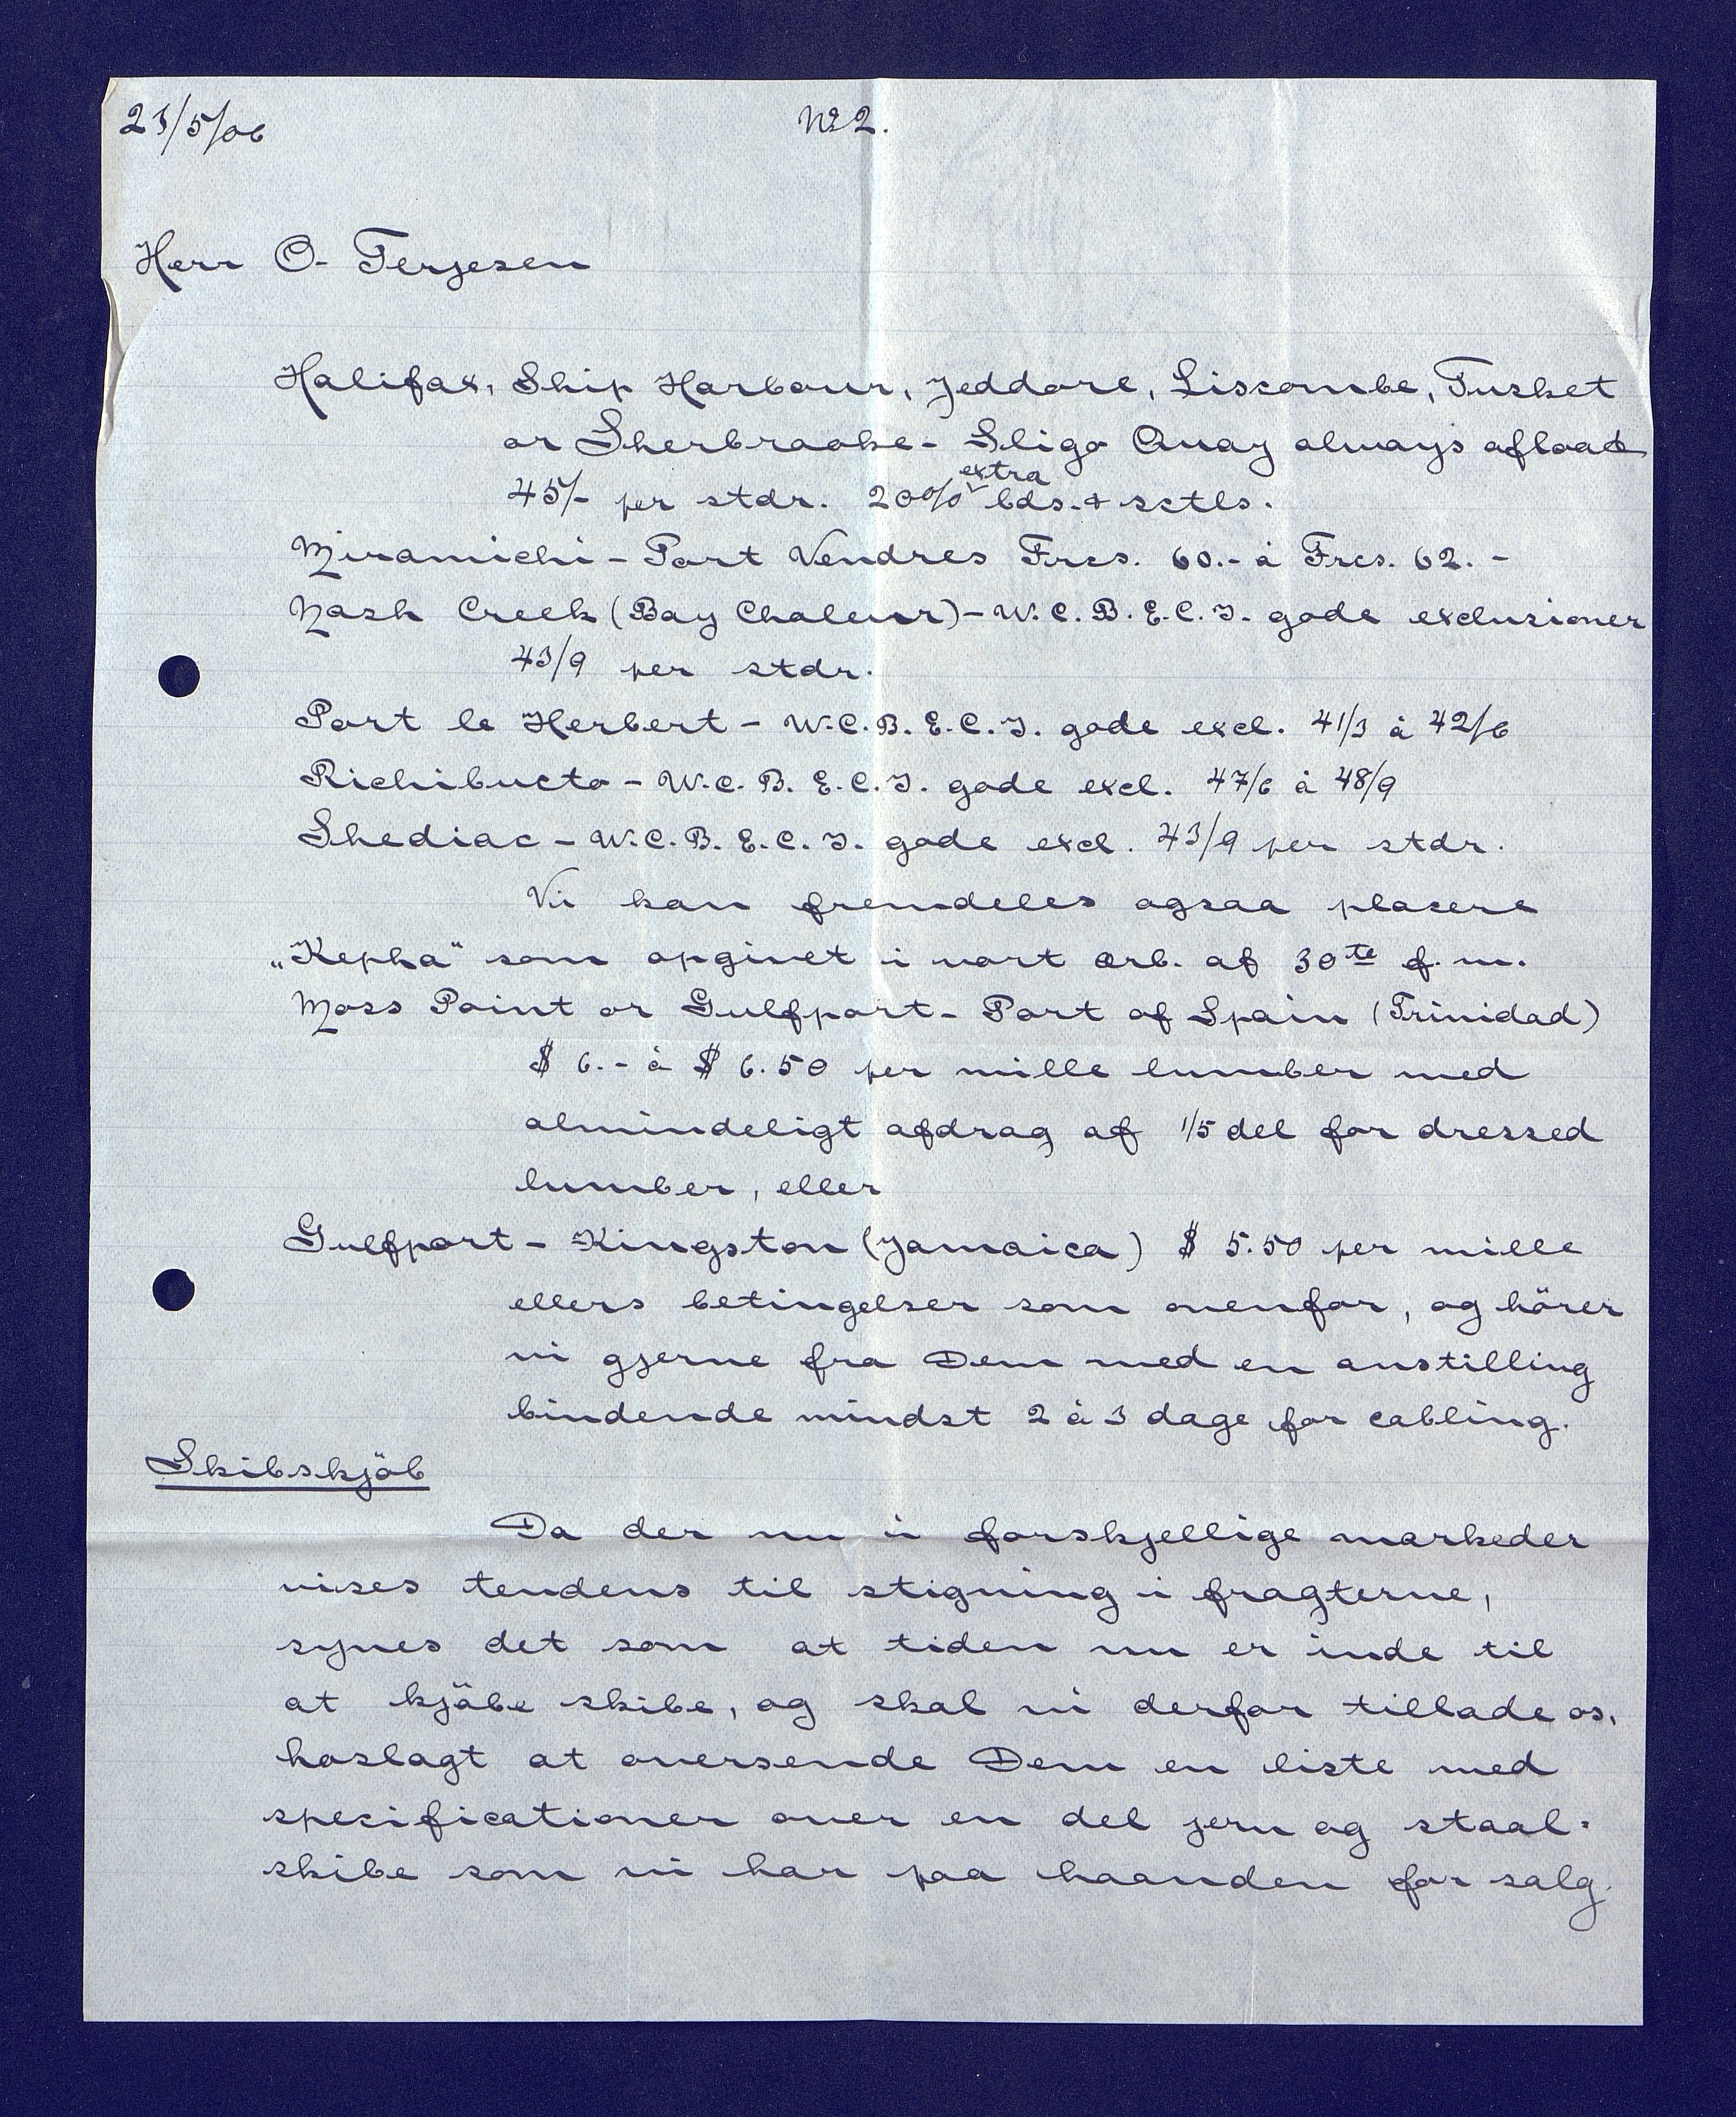 23/5/06
No 2.
Herr O. Terjesen
Halifax, Ship Harbour, Jeddore, Liscombe, Tusket
or Sherbrooke - Sligo Quay always afloat
extra
45/- per stdr. 20% bds. & sctls.
Miramichi - Port Vendres Frcs. 60.- à Frcs. 62.-
Nash Creek (Bay Chaleur) - W.C.B.E.C.I. gode exclusioner
43/9 per stdr.
Port le Herbert - W.C.B.E.C.I. gode excl. 41/3 à 42/6
Richibucto - W.C.B.E.C.I. gode excl. 47/6 à 48/9
Shediac - W.C.B.E.C.I. gode excl. 43/9 per stdr.
Vi kan fremdeles ogsaa placere
„Kepha" som opgivet i vort ærb. af 30te f.m.
Moss Point or Gulfport - Port of Spain (Trinidad)
$ 6.- à $ 6.50 per mille lumber med
almindeligt afdrag af 1/5 del for dressed
lumber, eller
Gulfport - Kingston (Jamaica) $ 5.50 per mille
ellers betingelser som ovenfor, og hörer
vi gjerne fra Dem med en anstilling
bindende mindst 2 à 3 dage for cabling.
Skibskjöb
Da der nu i forskjellige markeder
vises tendens til stigning i fragterne,
synes det som at tiden nu er inde til
at kjöbe skibe, og skal vi derfor tillade os,
hoslagt at oversende Dem en liste med
specificationer over en del jern og staal=
skibe som vi har paa haanden for salg.